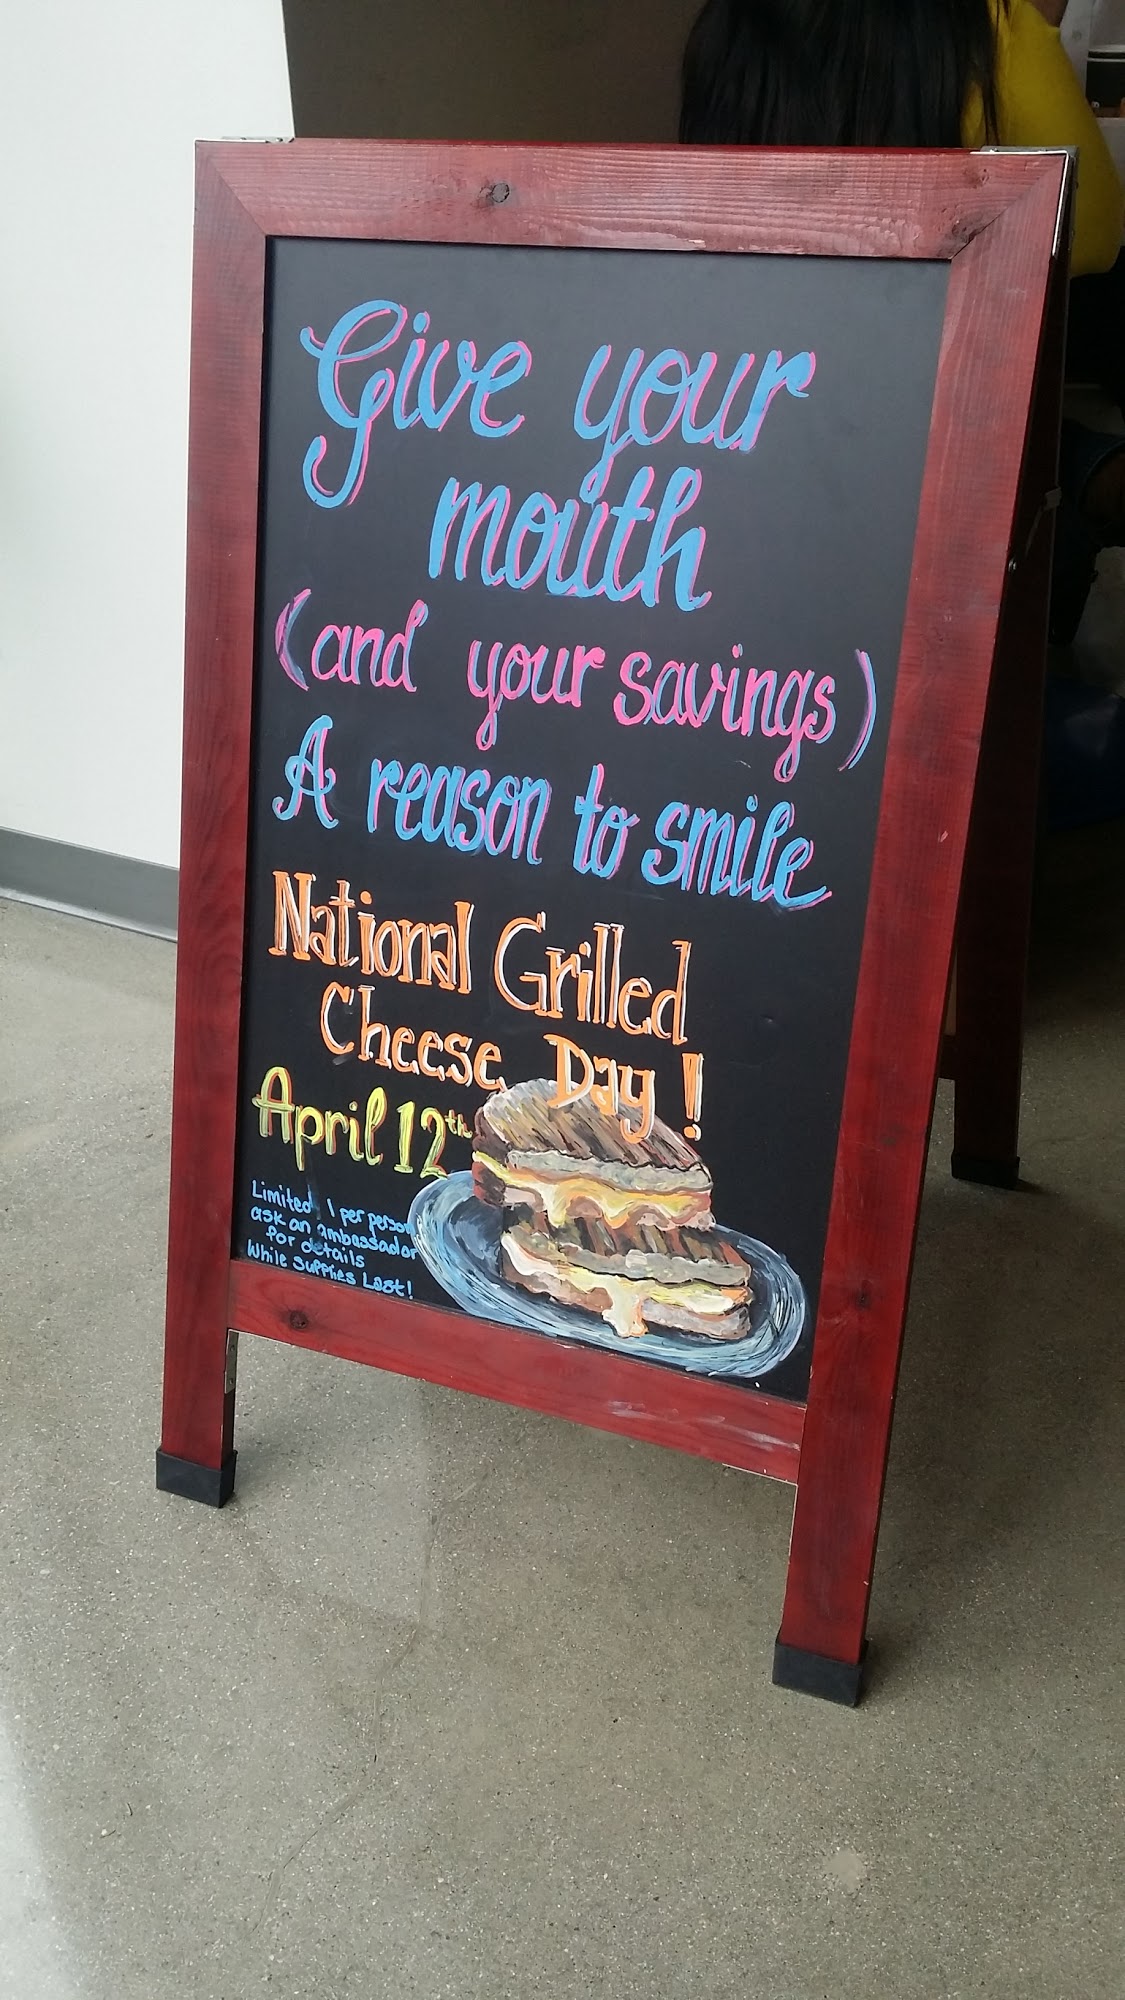 Give your
mouth
(and your savings)
A reason to smile
National Grilled
Cheese Day!
April 12th
Limited 1 per person
ask an ambassador
for details
While Supplies Last!